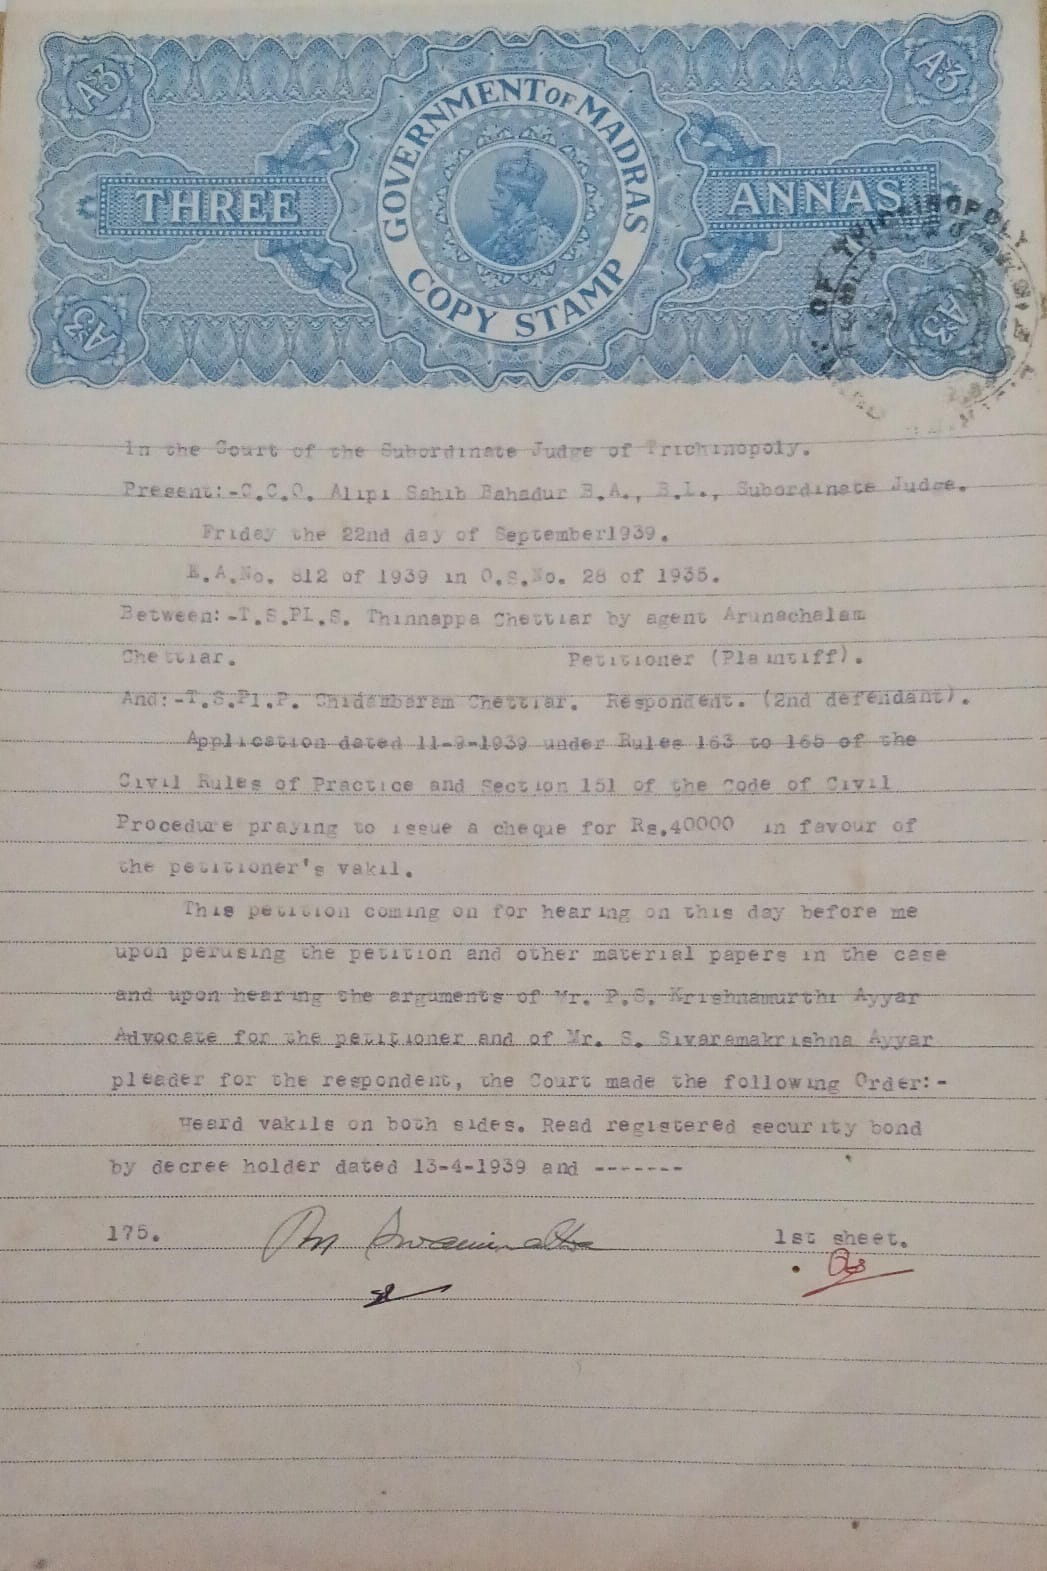 A3
A3
GOVERNMENT OF MADRAS
THREE
ANNAS
COPY STAMP
A3
A3
OF TRICHINOPOLY
In the Court of the Subordinate Judge of Trichinopoly.
Present:-C.C.O. Alipi Sahib Bahadur B.A., B.L., Subordinate Judge.
Friday the 22nd day of September1939.
E.A.No. 812 of 1939 in O.S.No. 28 of 1935.
Between:-T.S.PL.S. Thinnappa Chettiar by agent Arunachalam
Chettiar. Petitioner (Plaintiff).
And:-T.S.Pl.P. Chidambaram Chettiar. Respondent. (2nd defendant).
Application dated 11-9-1939 under Rules 163 to 165 of the
Civil Rules of Practice and Section 151 of the Code of Civil
Procedure praying to issue a cheque for Rs.40000 in favour of
the petitioner's vakil.
This petition coming on for hearing on this day before me
upon perusing the petition and other material papers in the case
and upon hearing the arguments of Mr. P.S. Krishnamurthi Ayyar
Advocate for the petitioner and of Mr. S. Sivaramakrishna Ayyar
pleader for the respondent, the Court made the following Order:-
Heard vakils on both sides. Read registered security bond
by decree holder dated 13-4-1939 and -------
175. 1st sheet.